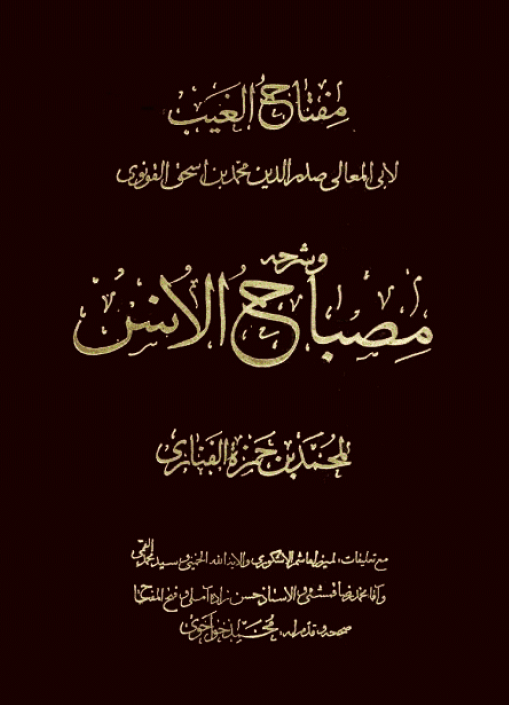 مفتاح الغيب
لأبي المعالي صدر الدين محمد بن اسحق القونوي
وشرحه
مصباح الأنس
لمحمد بن حمزة الفناري
مع تعليقات: لميرزا هاشم الاشكوري والاية الله الخميني و سيد محمد القمي
و آقا محمد رضا قمشه‌ئي و الاستاذ حسن زاده آملي و فتح المفتاح
صححه و قدم له: محمد خواجوي